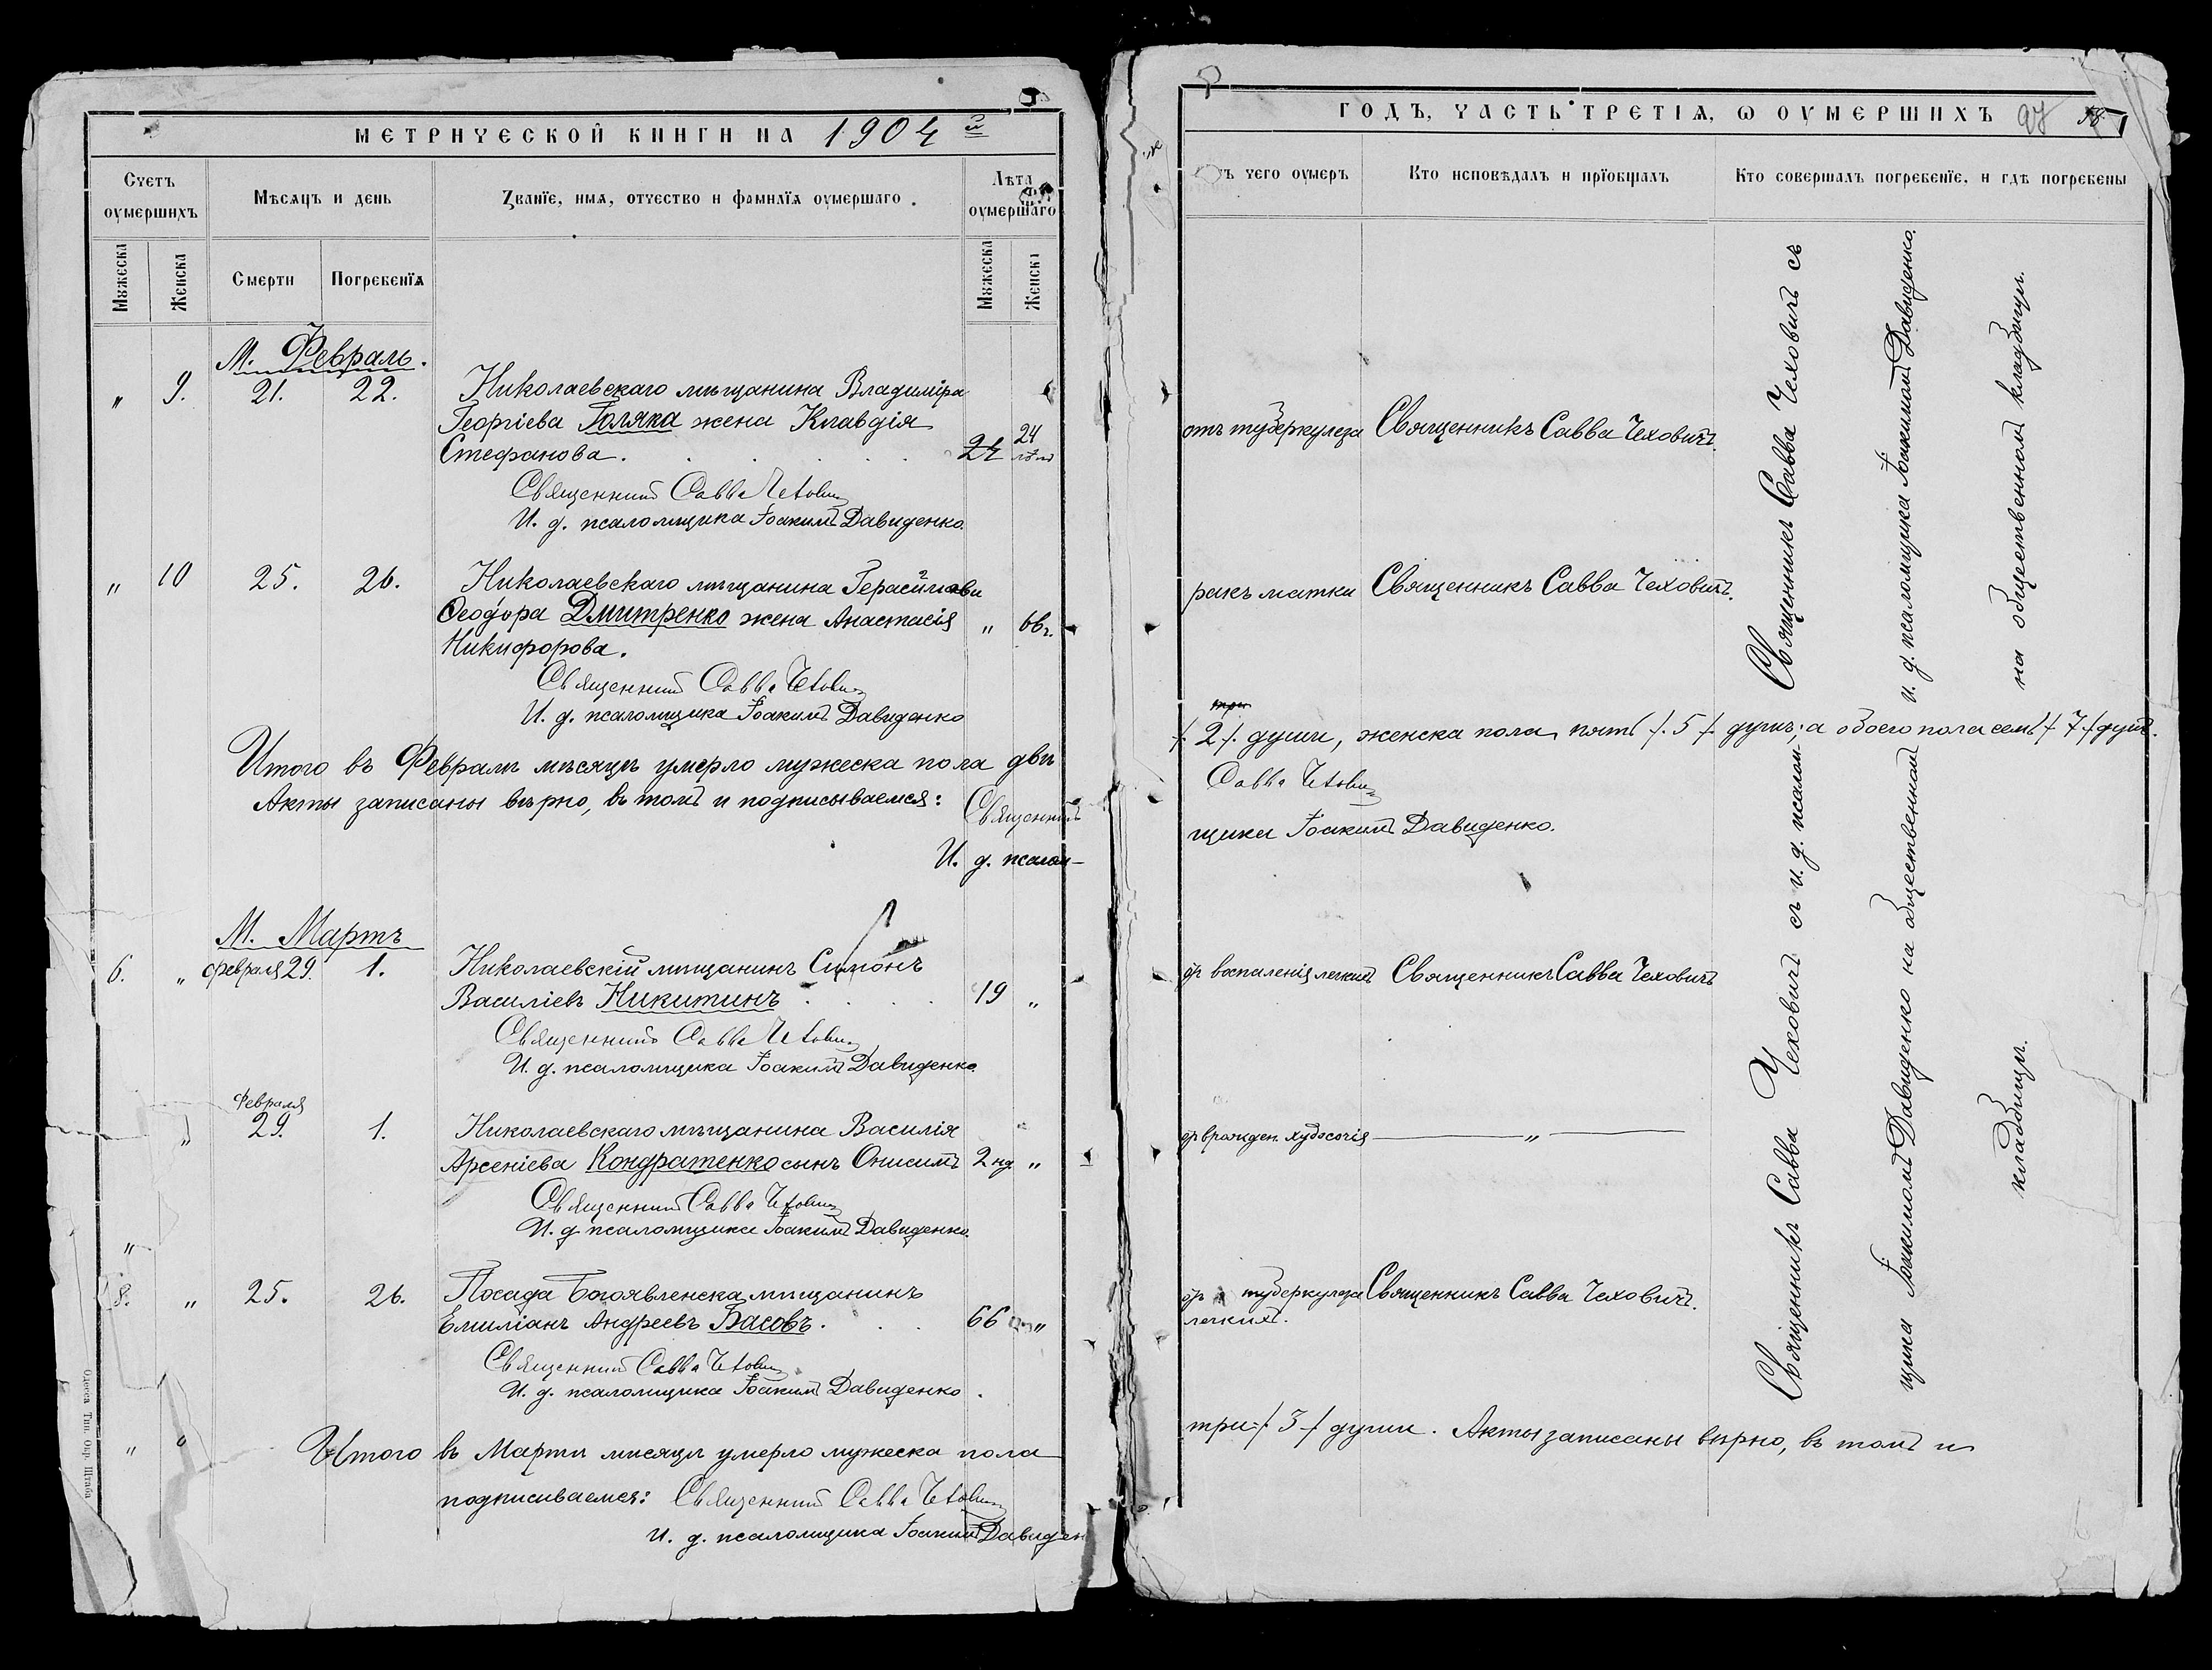 МЕТРИЧЕСКОЙ КНИГИ НА 1904 й
Счетъ оумершихъ
Мѣсяцъ и день
Званїе, имя, отчество и фамилїя оумершаго.
Лѣта оумершаго
Мужеска
Женска
Смерти
Погребенїя
Мужеска
Женска
М. Февраль.
" 9. 21. 22. Николаевскаго мѣщанина Владиміра
Георгіева Голяка жена Клавдія
Стефанова. 24 24 лѣт
Священникъ Савва Чеховичъ
И. д. псаломщика Іоакимъ Давиденко.
" 10 25. 26. Николаевскаго мѣщанина Герасимова
Ѳеодора Дмитренко жена Анастасія " 66 г.
Никифорова.
Священникъ Савва Чеховичъ
И. д. псаломщика Іоакимъ Давиденко
Итого въ Февралѣ мѣсяцѣ умерло мужеска пола двѣ
Акты записаны вѣрно, въ томъ и подписываемся: Священникъ
И. д. псалом-
М. Мартъ
6. " февраля 29. 1. Николаевскій мѣщанинъ Симонъ
Василіевъ Никитинъ 19 "
Священникъ Савва Чеховичъ
И. д. псаломщика Іоакимъ Давиденко.
Февраля
" 29. 1. Николаевскаго мѣщанина Василія
Арсеніева Кондратенко сынъ Онисимъ 2 нд "
Священникъ Савва Чеховичъ
И. д. псаломщика Іоакимъ Давиденко.
"
8. " 25. 26. Посада Богоявленска мѣщанинъ
Емиліанъ Андреевъ Басовъ. 66 "
Священникъ Савва Чеховичъ
И. д. псаломщика Іоакимъ Давиденко.
" " Итого въ Мартѣ мѣсяцѣ умерло мужеска пола
подписываемся: Священникъ Савва Чеховичъ
И. д. псаломщика Іоакимъ Давиден
Одесса Тип. Окр. Штаба
ГОДЪ, ЧАСТЬ ТРЕТІѦ, Ѡ ОУМЕРШИХЪ 97 58.
ъ чего оумеръ
Кто исповѣдалъ и прїобщалъ
Кто совершалъ погребенїе, и гдѣ погребены
отъ туберкулеза Священникъ Савва Чеховичъ.
ракъ матки Священникъ Савва Чеховичъ.
Священникъ Савва Чеховичъ съ
и. д. псаломщика Іоакимомъ Давиденко.
на общественномъ кладбищѣ.
три
/. 2 /. души, женска пола, пять /. 5 /. душъ; а обоего пола семь /. 7 /. душъ.
Савва Чеховичъ
щика Іоакимъ Давиденко.
отъ воспаленія легкихъ Священникъ Савва Чеховичъ
отъ врожден. худосочія — " —
отъ туберкулеза Священникъ Савва Чеховичъ.
легкихъ.
Священникъ Савва Чеховичъ съ и. д. псалом-
щика Іоакимомъ Давиденко на общественномъ
кладбищѣ.
три /. 3 /. души. Акты записаны вѣрно, въ томъ и